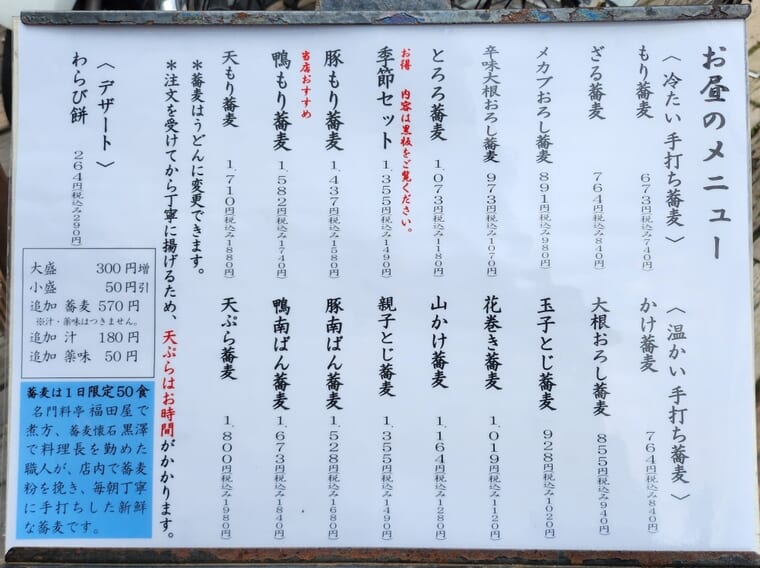 お昼のメニュー
〈 冷たい 手打ち蕎麦 〉
もり蕎麦 673円(税込み740円)
ざる蕎麦 764円(税込み840円)
メカブおろし蕎麦 891円(税込み980円)
辛味大根おろし蕎麦 973円(税込み1070円)
とろろ蕎麦 1,073円(税込み1180円)
お得 内容は黒板をご覧ください。
季節セット 1,355円(税込み1490円)
豚もり蕎麦 1,437円(税込み1580円)
当店おすすめ
鴨もり蕎麦 1,582円(税込み1740円)
天もり蕎麦 1,710円(税込み1880円)
〈 温かい 手打ち蕎麦 〉
かけ蕎麦 764円(税込み840円)
大根おろし蕎麦 855円(税込み940円)
玉子とじ蕎麦 928円(税込み1020円)
花巻き蕎麦 1,019円(税込み1120円)
山かけ蕎麦 1,164円(税込み1280円)
親子とじ蕎麦 1,355円(税込み1490円)
豚南ばん蕎麦 1,528円(税込み1680円)
鴨南ばん蕎麦 1,673円(税込み1840円)
天ぷら蕎麦 1,800円(税込み1980円)
*蕎麦はうどんに変更できます。
*注文を受けてから丁寧に揚げるため、天ぷらはお時間がかかります。
〈 デザート 〉
わらび餅 264円(税込み290円)
大盛 300円増
小盛 50円引
追加 蕎麦 570円
※汁・薬味はつきません。
追加 汁 180円
追加 薬味 50円
蕎麦は1日限定50食
名門料亭 福田屋で
煮方、蕎麦懐石 黒澤
で料理長を勤めた
職人が、店内で蕎麦
粉を挽き、毎朝丁寧
に手打ちした新鮮
な蕎麦です。